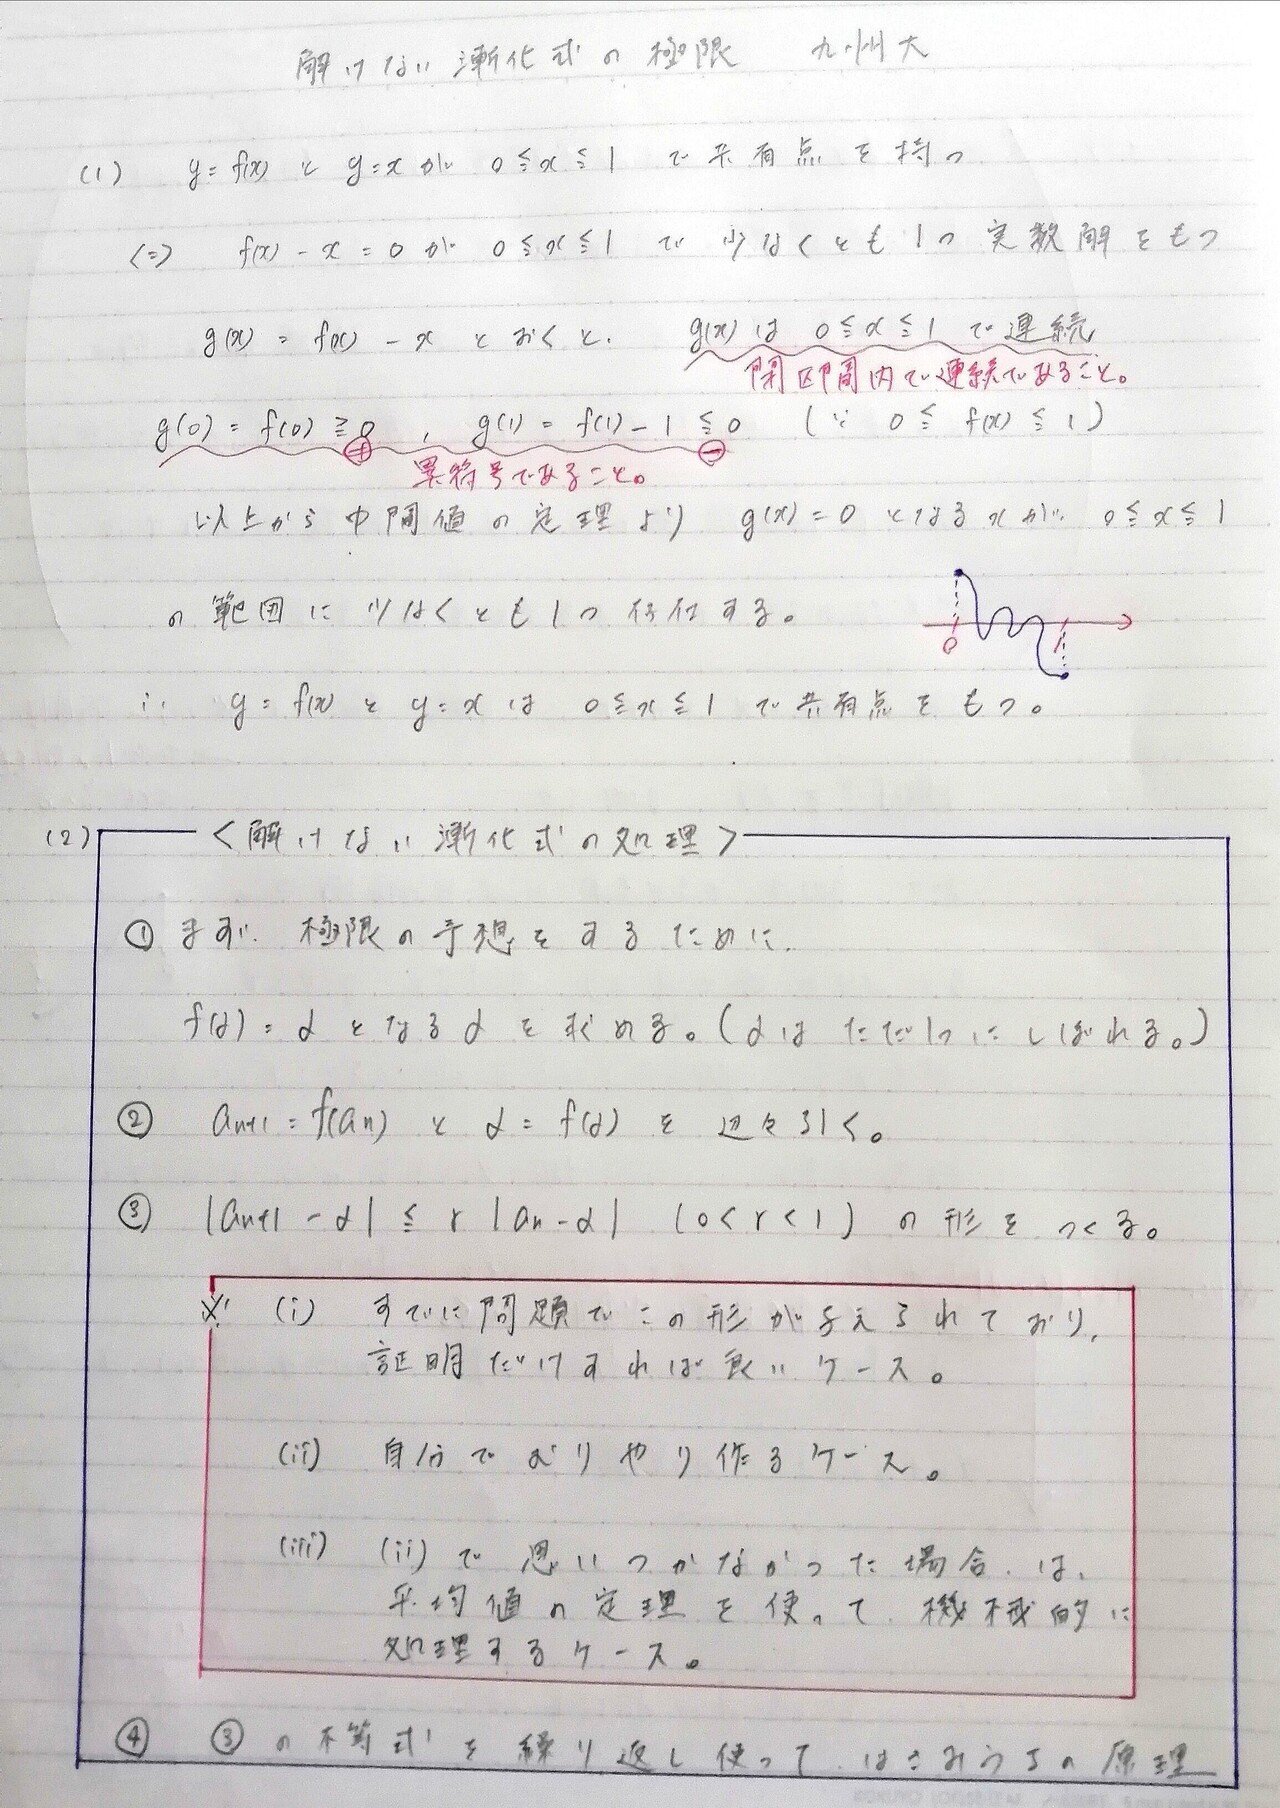 解けない漸化式の極限 九州大
(1) y=f(x) と y=x が 0≦x≦1 で共有点を持つ
⇔ f(x)-x=0 が 0≦x≦1 で少なくとも1つ実数解をもつ
g(x)=f(x)-x とおくと、 g(x)は 0≦x≦1 で連続
閉区間内で連続であること。
g(0)=f(0)≧0 , g(1)=f(1)-1≦0 (∵ 0≦f(x)≦1)
⊕ ⊖
異符号であること。
以上から中間値の定理より g(x)=0 となるxが 0≦x≦1
の範囲に少なくとも1つ存在する。
0 1
∴ y=f(x) と y=x は 0≦x≦1 で共有点をもつ。
(2) <解けない漸化式の処理>
① まず、極限の予想をするために、
f(α)=α となるα を求める。(αはただ1つに しばれる。)
② an+1=f(an) と α=f(α) を 辺々引く。
③ |an+1-α|≦r|an-α| (0<r<1) の形をつくる。
※ (i) すでに問題でこの形が与えられており、
証明だけすれば良いケース。
(ii) 自分でムリやり作るケース。
(iii) (ii)で思いつかなかった場合は、
平均値の定理を使って、機械的に
処理するケース。
④ ③の不等式を繰り返し使って、はさみうちの原理